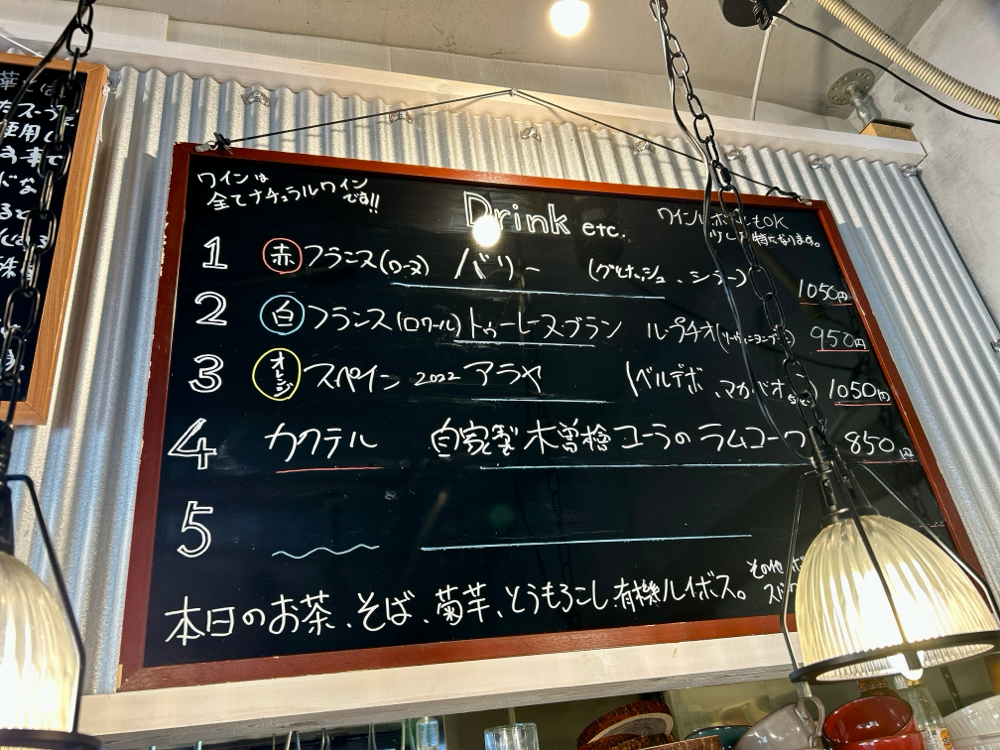 ワインは
全てナチュラルワイン
です!!
Drink etc.
ワイン もOK
1 赤 フランス(ローヌ) バリー (グルナッシュ、シラー) 1050円
2 白 フランス(ロワール) トゥーレーヌブラン ル・プチオ 950円
3 オレンジ スペイン 2022 アラヤ (ベルデホ、マカベオ 1050円
4 カクテル 自家製 木曽檜コーラの ラムコーク 850円
5
本日のお茶、そば、菊芋、とうもろこし、有機ルイボス。
その他